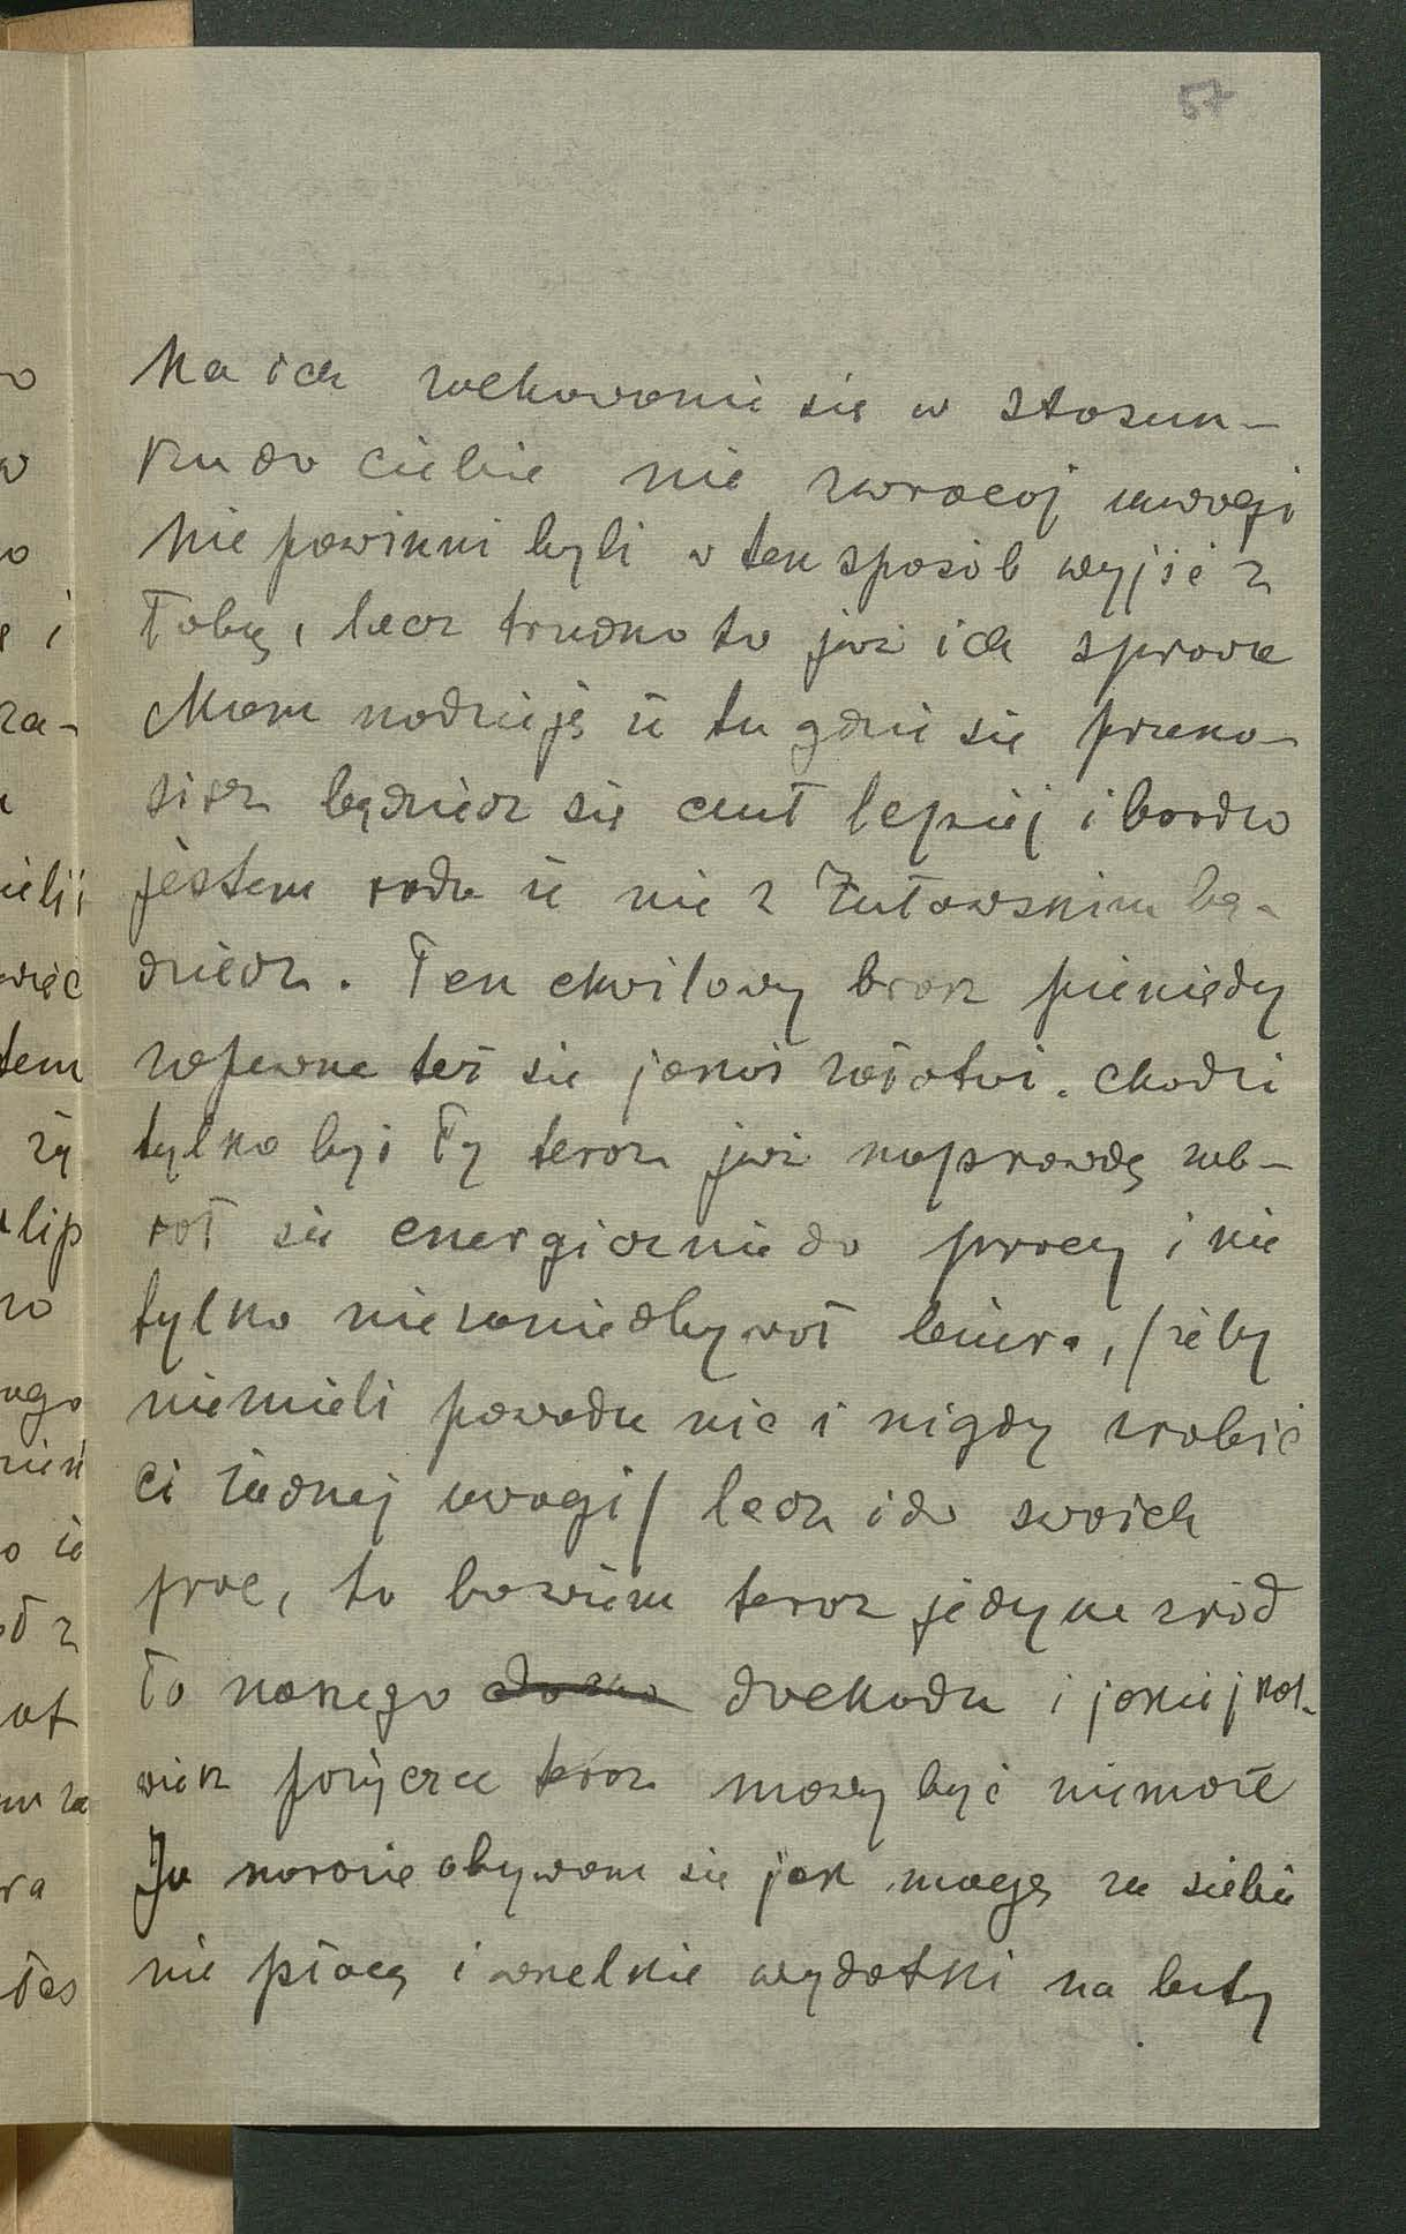 57
Na ich zachowanie się w stosun-
ku do ciebie nie zwracaj uwagi
Nie powinni byli w ten sposób wyjść z
Tobą, lecz trudno to już ich sprawa
Mam nadzieję że tu gdzie się przeno-
sisz będziesz się czuł lepiej i bardzo
jestem rada że nie z Żuławskim bę-
dziesz. Ten chwilowy brak pieniędzy
zapewne też się jakoś załatwi. Chodzi
tylko byś Ty teraz już naprawdę zab-
rał się energicznie do pracy i nie
tylko nie zaniedbywał biura, /żeby
niemieli powodu nic i nigdy zrobić
ci żadnej uwagi/ lecz i do swoich
prac, to bowiem teraz jedyne źród
ło naszego dochodu i jakiejkol-
wiek pożyczce teraz mowy być niemoże
Ja narazie obywam się jak mogę za siebie
nie płacę i wszelkie wydatki na buty
o
w
o
ę i
za-
ielii
więc
tem
ży
lip
ro
ego
zień
o ie
ał z
at
m za
ra
łes